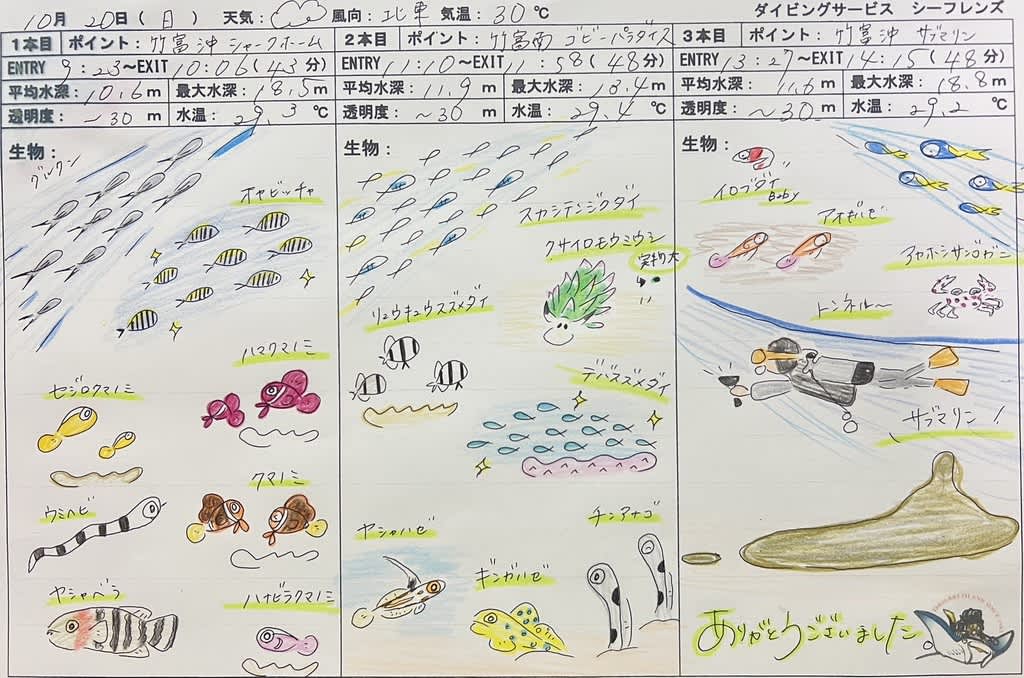 10月 20日(月) 天気: 風向: 北東 気温: 30℃
ダイビングサービス シーフレンズ
1本目 ポイント: 竹富沖 シャークホーム
ENTRY 9:23〜EXIT 10:06(43分)
平均水深: 10.6m 最大水深: 18.5m
透明度: 〜30m 水温: 29.3℃
生物:
グルクン
オヤビッチャ
ハマクマノミ
セジロクマノミ
クマノミ
ウミヘビ
ヤシャベラ
ハナビラクマノミ
2本目 ポイント: 竹富南 ゴビーパラダイス
ENTRY 11:10〜EXIT 11:58(48分)
平均水深: 11.9m 最大水深: 18.4m
透明度: 〜30m 水温: 29.4℃
生物:
スカシテンジクダイ
クサイロモウミウシ
実物大
リュウキュウスズメダイ
デバスズメダイ
ヤシャハゼ
チンアナゴ
ギンガハゼ
3本目 ポイント: 竹富沖 サブマリン
ENTRY 13:27〜EXIT 14:15(48分)
平均水深: 11.6m 最大水深: 18.8m
透明度: 〜30m 水温: 29.2℃
生物:
イロブダイ
Baby
アオギハゼ
アヤホシサンゴガニ
トンネル〜
サブマリン!
ありがとうございました